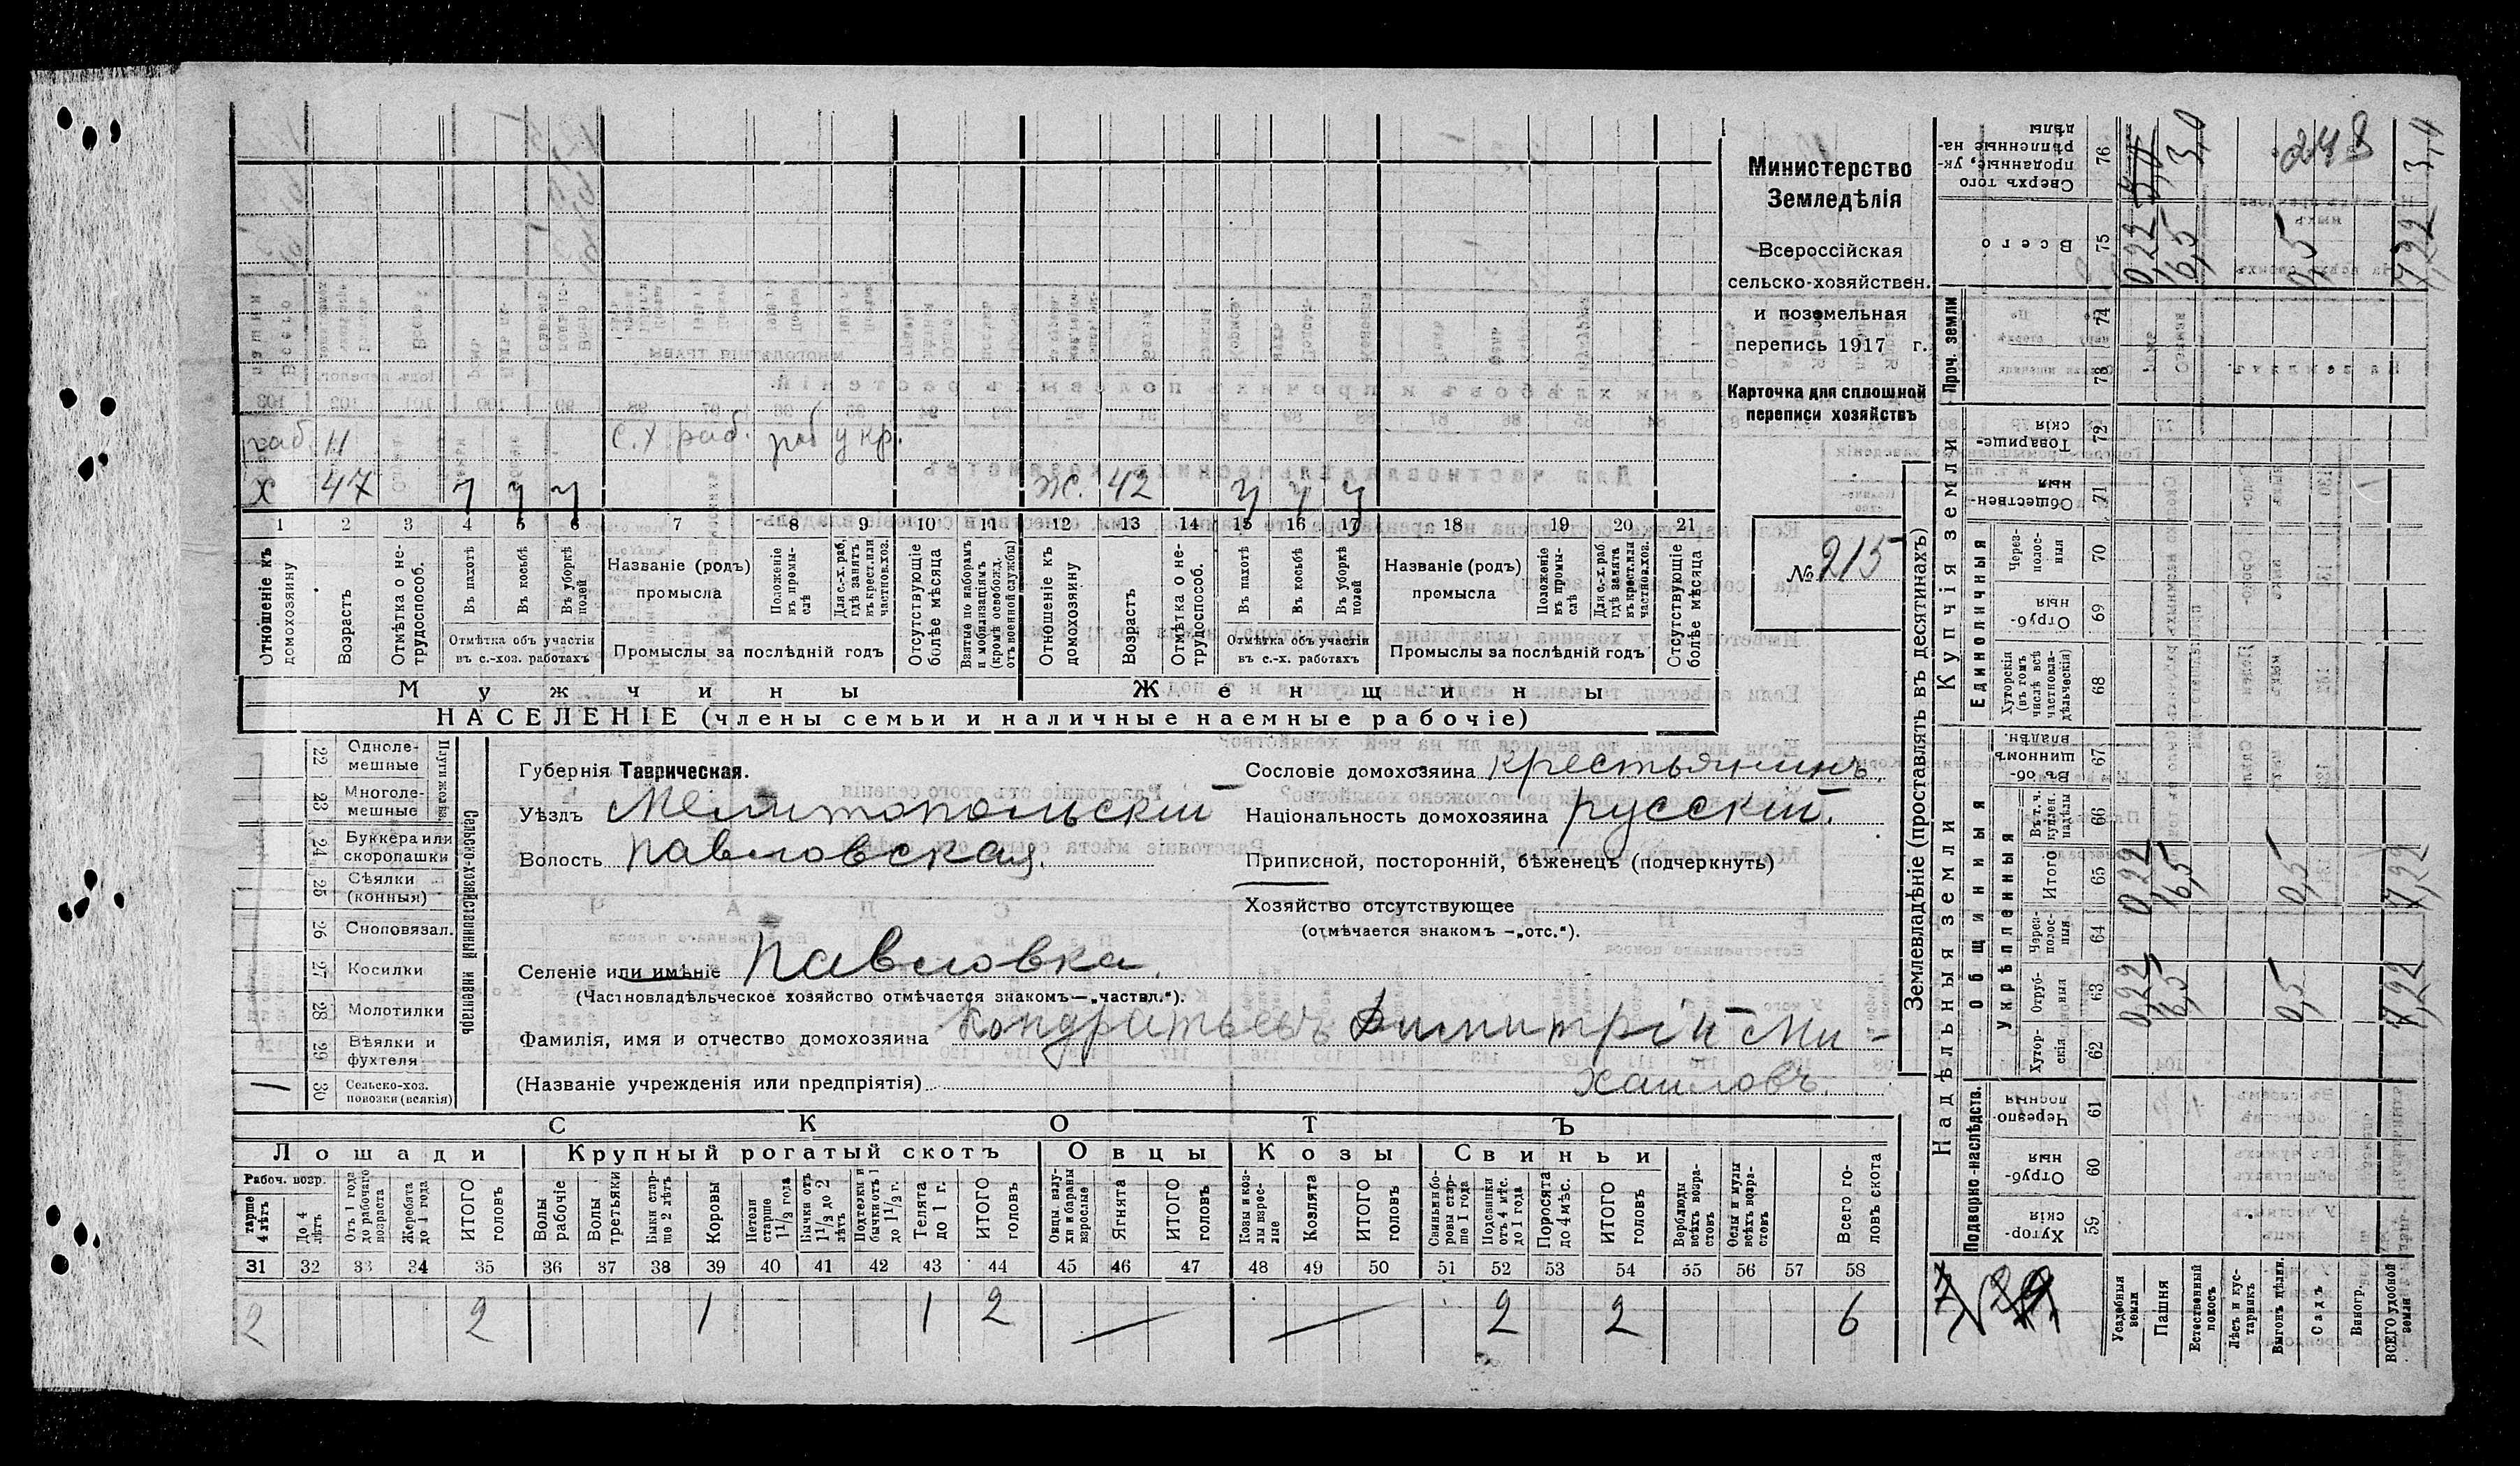 Министерство
Земледѣлія
Всероссійская
сельско-хозяйствен.
и поземельная
перепись 1917 г.
Карточка для сплошной
переписи хозяйствъ
№ 215
раб. Н с.х раб. раб у кр.
х 47 у у у Ж. 42 у у у
1 2 3 4 5 6 7 8 9 10 11 12 13 14 15 16 17 18 19 20 21
Отношеніе къ домохозяину
Возрастъ
Отмѣтка о не-трудоспособ.
Въ пахотѣ
Въ косьбѣ
Въ уборкѣ полей
Отмѣтка объ участіи въ с.-хоз. работахъ
Названіе (родъ) промысла
Положеніе въ промы-слѣ
Для с.-х. раб, гдѣ занятъ въ крест. или частнов. хоз.
Промыслы за послѣдній годъ
Отсутствующіе болѣе мѣсяца
Взятые по наборамъ и мобилизаціямъ (кромѣ освобожд. отъ военной службы)
Отношеніе къ домохозяину
Возрастъ
Отмѣтка о не-трудоспособ.
Въ пахотѣ
Въ косьбѣ
Въ уборкѣ полей
Отмѣтка объ участіи въ с.-х. работахъ
Названіе (родъ) промысла
Положеніе въ промы-слѣ
Для с.-х. раб гдѣ занята въ крест. или частнов. хоз.
Промыслы за послѣдній годъ
Отсутствующіе болѣе мѣсяца
Мужчины Женщины
НАСЕЛЕНІЕ (члены семьи и наличные наемные рабочіе)
Сельско-хозяйственный инвентарь
Плуги желѣз.
22 Одноле-мешные
23 Многоле-мешные
24 Буккера или скоропашки
25 Сѣялки (конныя)
26 Сноповязал.
27 Косилки
28 Молотилки
29 Вѣялки и фухтеля
30 Сельско-хоз. повозки (всякія) 1
Губернія Таврическая.
Уѣздъ Мелитопольскій
Волость Павловская.
Селеніе или имѣніе Павловка.
(Частновладѣльческое хозяйство отмѣчается знакомъ—„частвл.“).
Фамилія, имя и отчество домохозяина Кондратьевъ Димитрій Ми-
(Названіе учрежденія или предпріятія) хаиловъ.
Сословіе домохозяина крестьянинъ
Національность домохозяина русскій.
Приписной, посторонній, бѣженецъ (подчеркнуть)
Хозяйство отсутствующее
(отмѣчается знакомъ —„отс.“).
СКОТЪ
Лошади Крупный рогатый скотъ Овцы Козы Свиньи
Рабоч. возр.
старше 4 лѣтъ
До 4 лѣтъ
Отъ 1 года до рабочаго возраста
Жеребята до 1 года
ИТОГО головъ
Волы рабочіе
Волы третьяки
Быки стар-ше 2 лѣтъ
Коровы
Нетели старше 1 1/2 года
Бычки отъ 1 1/2 до 2 лѣтъ
Подтелки и бычки отъ 1 до 1 1/2 г.
Телята до 1 г.
ИТОГО головъ
Овцы, валу-хи и бараны взрослые
Ягнята
ИТОГО головъ
Козы и коз-лы взрос-лые
Козлята
ИТОГО головъ
Свиньи бо-ровы стар-ше 1 года
Подсвинки отъ 4 мѣс. до 1 года
Поросята до 4 мѣс.
ИТОГО головъ
Верблюды всѣхъ возра-стовъ
Ослы и мулы всѣхъ возра-стовъ
Всего го-ловъ скота
31 32 33 34 35 36 37 38 39 40 41 42 43 44 45 46 47 48 49 50 51 52 53 54 55 56 57 58
2 2 1 1 2 — — 2 2 6
Землевладѣніе (проставлять въ десятинахъ)
Надѣльныя земли Купчія земли Проч. земли
Подворно-наслѣдств. Общинныя Единоличныя
Укрѣпленныя
59 Хутор-скія
60 Отруб-ныя
61 Черезпо-лосныя
62 Хутор-скія
63 Отруб-ныя
64 Через-полос-ныя
65 Итого
66 Въ т. ч. куплен. надѣлы
67 Въ об-щинномъ владѣн.
68 Хуторскія (въ томъ числѣ всѣ частновла-дѣльческія)
69 Отруб-ныя
70 Через-полос-ныя
71 Обществен-ныя
72 Товарище-скія
73
74
75 Всего
76 Сверхъ того проданные, ук-рѣпленные на-дѣлы
Усадебныя земли 0,22 0,22 0,22
Пашня 6,5 6,5 6,5 3,0
Естественный покосъ
Лѣсъ и кус-тарникъ
Выгонъ цѣлин. 0,5 0,5 0,5
Садъ
Виногр.
ВСЕГО удобной земли 7,22 7,22 7,22